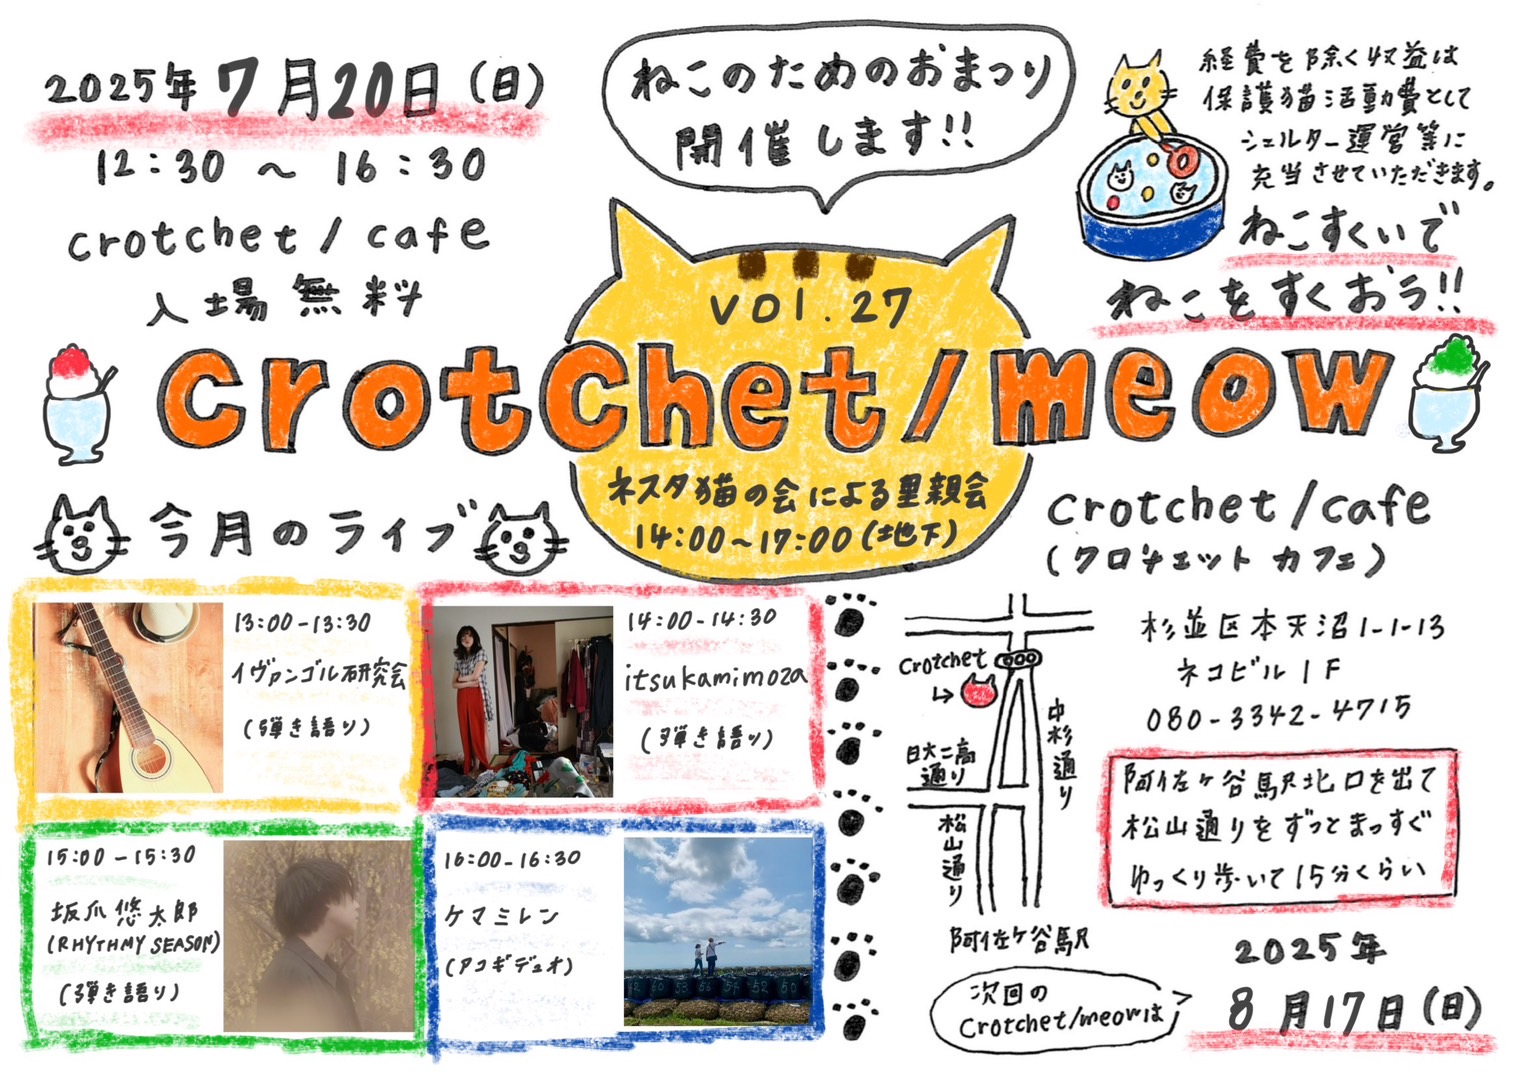 2025年7月20日(日)
12:30 ~ 16:30
crotchet/cafe
入場無料
ねこのためのおまつり
開催します!!
経費を除く収益は
保護猫活動費として
シェルター運営等に
充当させていただきます。
ねこすくいで
ねこをすくおう!!
vol.27
crotchet/meow
ネスタ猫の会による里親会
14:00~17:00(地下)
今月のライブ
13:00-13:30
イヴァンゴル研究会
(弾き語り)
14:00-14:30
itsukamimoza
(弾き語り)
15:00-15:30
坂爪悠太郎
(RHYTHMY SEASON)
(弾き語り)
16:00-16:30
ケマミレン
(アコギデュオ)
crotchet/cafe
(クロチェット カフェ)
杉並区本天沼1-1-13
ネコビル1F
080-3342-4715
crotchet
中杉通り
日大二高
通り
松山通り
阿佐ケ谷駅
阿佐ケ谷駅北口を出て
松山通りをずっとまっすぐ
ゆっくり歩いて15分くらい
次回の
Crotchet/meowは
2025年
8月17日(日)